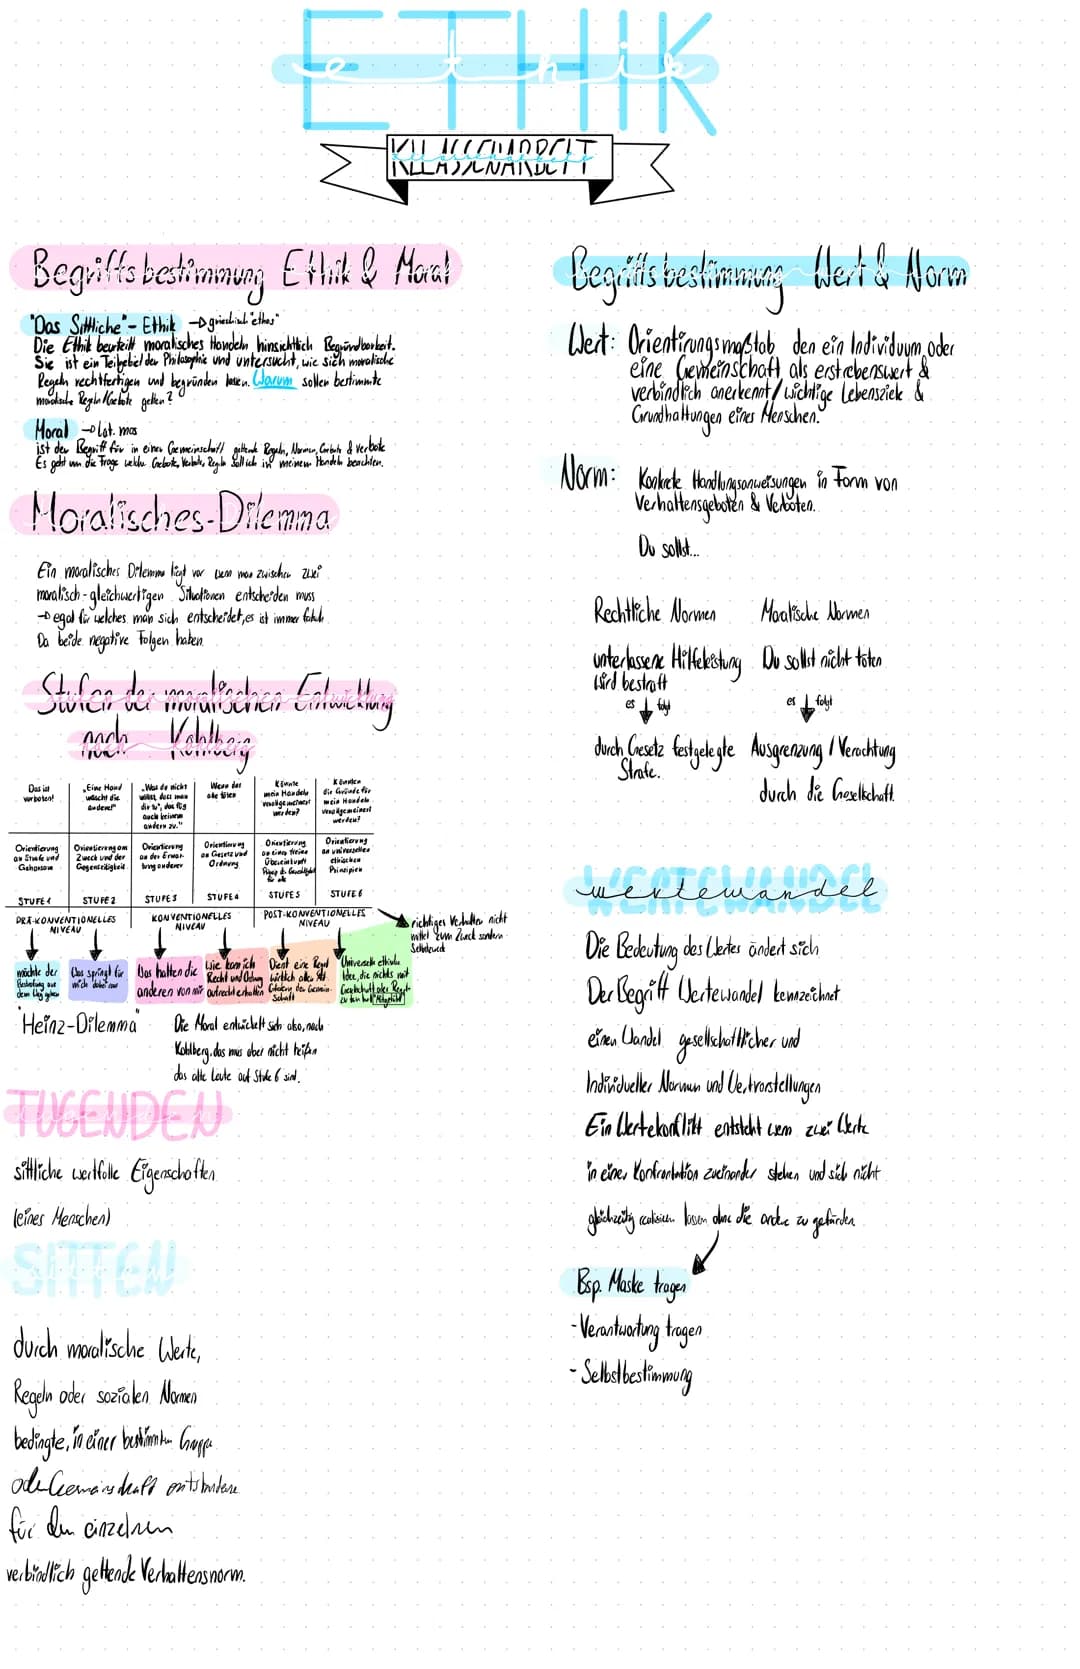 ETHIK
ethik
KLLASSENARBEIT
Begriffsbestimmung Ethik & Moral
"Das Sittliche" - Ethik → griechisch "ethos"
Die Ethik beurteilt moralisches Handeln hinsichtlich Begründbarkeit.
Sie ist ein Teilgebiet der Philosophie und untersucht, wie sich moralische
Regeln rechtfertigen und begründen lassen. Warum sollen bestimmte
moralische Regeln/Gebote gelten?
Moral → Lat. mos
ist der Begriff für in einer Gemeinschaft geltende Regeln, Normen, Gebote & Verbote
Es geht um die Frage welche Gebote, Verbote, Regeln soll ich in meinem Handeln beachten.
Moralisches-Dilemma
Ein moralisches Dilemma liegt vor wenn man zwischen zwei
moralisch-gleichwertigen Situationen entscheiden muss
→ egal für welches man sich entscheidet, es ist immer falsch
Da beide negative Folgen haben.
Stufen der moralischen Entwicklung
nach Kohlberg
Das ist verboten!
„Eine Hand wäscht die andere!"
„Was du nicht willst, dass man dir tu", das füg auch keinem andern zu."
Wenn das alle täten
Könnte mein Handeln verallgemeinert werden?
Könnten die Gründe für mein Handeln verallgemeinert werden?
Orientierung an Strafe und Gehorsam
Orientierung am Zweck und der Gegenseitigkeit
Orientierung an der Erwartung anderer
Orientierung an Gesetz und Ordnung
Orientierung an einer freien Übereinkunft
Orientierung an universellen ethischen Prinzipien
STUFE 1 STUFE 2 STUFE 3 STUFE 4 STUFE 5 STUFE 6
PRÄ-KONVENTIONELLES NIVEAU
KONVENTIONELLES NIVEAU
POST-KONVENTIONELLES NIVEAU
richtiges Verhalten nicht
mittel zum Zweck sondern
Selbstzweck
möchte der
Bestrafung aus
dem Weg gehen
Was springt für
mich dabei raus
Was halten die
anderen von mir
Wie kann ich
Recht und Ordnung
aufrecht erhalten
Dient eine Regel
wirklich allen
Universelle ethische
Idee, die nichts mit
Gesellschaft oder Regel
zu tun hat
"Heinz-Dilemma"
Die Moral entwickelt sich also, nach
Kohlberg, das mus aber nicht heißen
das alte Leute auf Stufe 6 sind.
TUGENDEN
sittliche wertfolle Eigenschaften
(eines Menschen)
SITTEN
durch moralische Werte,
Regeln oder sozialen Normen
bedingte, in einer bestimmten Gruppe
oder Gemeinschaft entstandene
für den einzelnen
verbindlich geltende Verhaltensnorm.
Begriffsbestimmung Wert & Norm
Wert: Orientirungsmaßtab den ein Individuum oder
eine Gemeinschaft als erstrebenswert &
verbindlich anerkennt/wichtige Lebensziele &
Grundhaltungen eines Menschen.
Norm: Konkrete Handlungsanweisungen in Form von
Verhaltensgeboten & Verboten.
Du sollst...
Rechtliche Normen
unterlassene Hilfeleistung
wird bestraft
es folgt
durch Gesetz festgelegte
Strafe.
Moalische Normen
Du sollst nicht töten
es folgt
Ausgrenzung / Verachtung
durch die Gesellschaft.
WERTEWANDEL
wertewandel
Die Bedeutung des Wertes ändert sich
Der Begriff Wertewandel kennzeichnet
einen Wandel gesellschaftlicher und
Individueller Normen und Wertvorstellungen
Ein Wertekonflikt entsteht wenn zwei Werte
in einer Konfrontation zueinander stehen und sich nicht
gleichzeitig realisieren lassen ohne die andere zu gefärden.
Bsp. Maske tragen
- Verantwortung tragen
- Selbstbestimmung